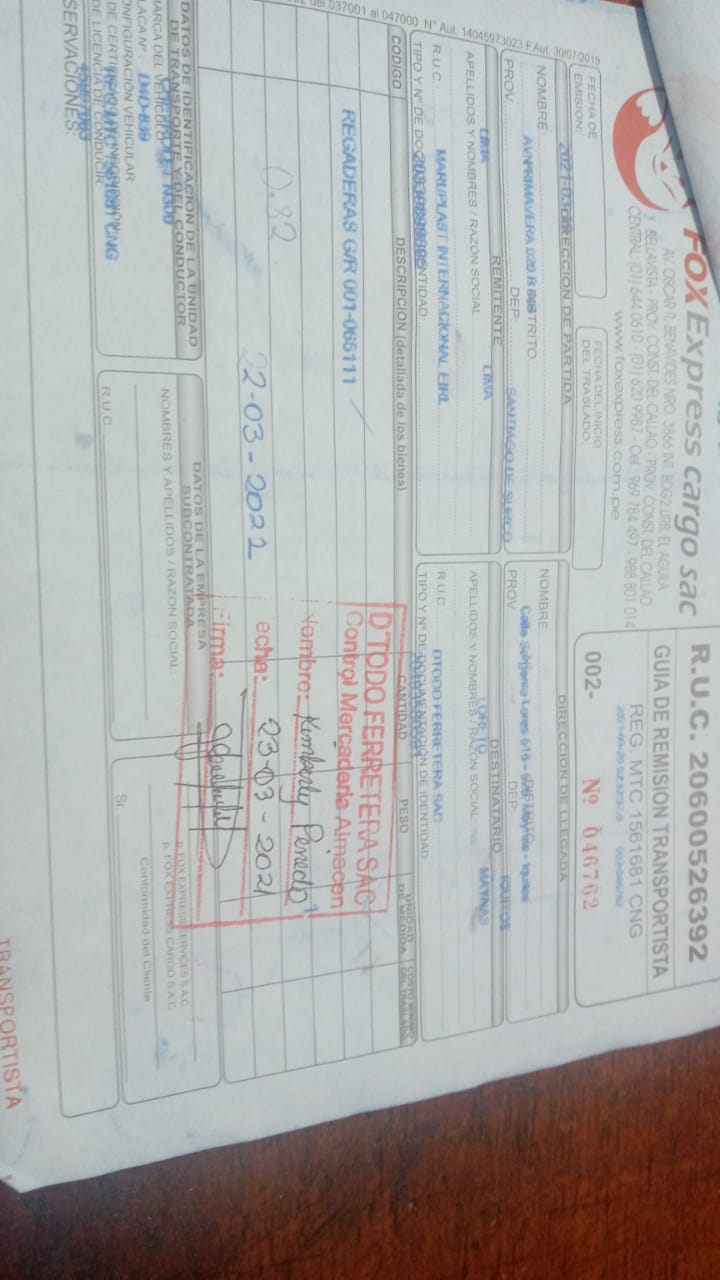 FOX Express cargo sac
AV. OSCAR R. BENAVIDES NRO. 3866 INT. BDG2 URB. EL AGUILA
BELLAVISTA - PROV. CONST. DEL CALLAO - PROV. CONST. DEL CALLAO
CENTRAL (01) 644 0610 - (01) 620 9987 - Cel. 969 784 497 - 988 801 014
www.foxexpress.com.pe
R.U.C. 20600526392
GUIA DE REMISION TRANSPORTISTA
REG. MTC 1561681 CNG
002- Nº 046762
FECHA DE EMISION:
FECHA DEL INICIO DEL TRASLADO:
DIRECCION DE PARTIDA
NOMBRE
AV.PRIMAVERA 020 B
DISTRITO
PROV.
LIMA
DEP
SANTIAGO DE SURCO
LIMA
DIRECCION DE LLEGADA
NOMBRE
DISTRITO
PROV
LORETO
DEP.
IQUITOS
MAYNAS
REMITENTE
APELLIDOS Y NOMBRES / RAZÓN SOCIAL
MARUPLAST INTERNACIONAL EIRL
R.U.C.
TIPO Y Nº DE DOCUMENTACION DE IDENTIDAD:
DESTINATARIO
APELLIDOS Y NOMBRES / RAZÓN SOCIAL
DTODO FERRETERA SAC
R.U.C.
TIPO Y Nº DE DOCUMENTACION DE IDENTIDAD:
CODIGO
DESCRIPCION (detallada de los bienes)
CANTIDAD
PESO
UNIDAD DE MEDIDA
REGADERAS G/R 001-065111
0.82
22-03-2021
D'TODO FERRETERA SAC
Control Mercaderia Almacen
Nombre: Kimberly Penedo
echa: 23-03-2021
Firma:
DATOS DE IDENTIFICACION DE LA UNIDAD
DE TRANSPORTE Y DEL CONDUCTOR
MARCA DEL VEHICULO
PLACA Nº:
CONFIGURACIÓN VEHICULAR
DE LICENCIA DE CONDUCIR
SERVACIONES:
DATOS DE LA EMPRESA
SUBCONTRATADA
NOMBRES Y APELLIDOS / RAZON SOCIAL:
R.U.C
p. FOX EXPRESS SERVICES S.A.C
p. FOX EXPRESS CARGO S.A.C
Conformidad del Cliente
Sr.
037001 al 047000 Nº Aut. 14045973023 F.Aut. 30/07/2019
TRANSPORTISTA